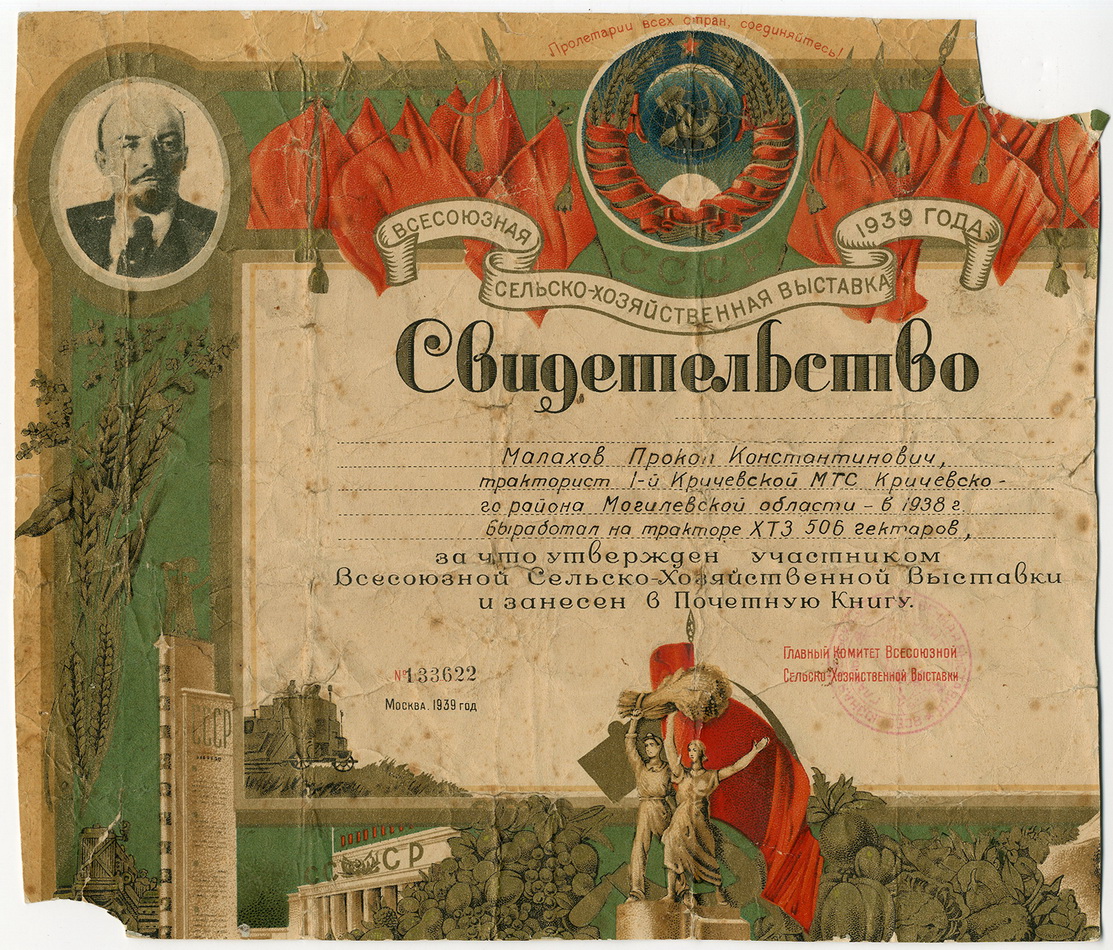 Пролетарии всех стран, соединяйтесь!
СССР
ВСЕСОЮЗНАЯ
СЕЛЬСКО-ХОЗЯЙСТВЕННАЯ ВЫСТАВКА
1939 ГОДА
Свидетельство
Малахов Прокоп Константинович,
тракторист 1-й Кричевской МТС Кричевско-
го района Могилевской области – в 1938 г.
выработал на тракторе ХТЗ 506 гектаров,
за что утвержден участником
Всесоюзной Сельско-Хозяйственной Выставки
и занесен в Почетную Книгу.
№133622
Москва. 1939 год
Главный Комитет Всесоюзной
Сельско-Хозяйственной Выставки
СССР
СССР